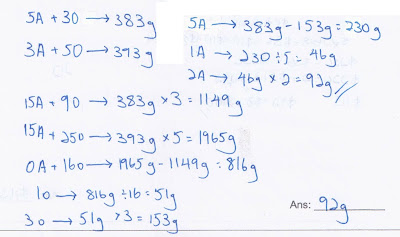 5A + 3O → 383g
3A + 5O → 393g
15A + 9O → 383g × 3 = 1149g
15A + 25O → 393g × 5 = 1965g
0A + 16O → 1965g - 1149g = 816g
1O → 816g ÷ 16 = 51g
3O → 51g × 3 = 153g
5A → 383g - 153g = 230g
1A → 230 ÷ 5 = 46g
2A → 46g × 2 = 92g
Ans: 92g